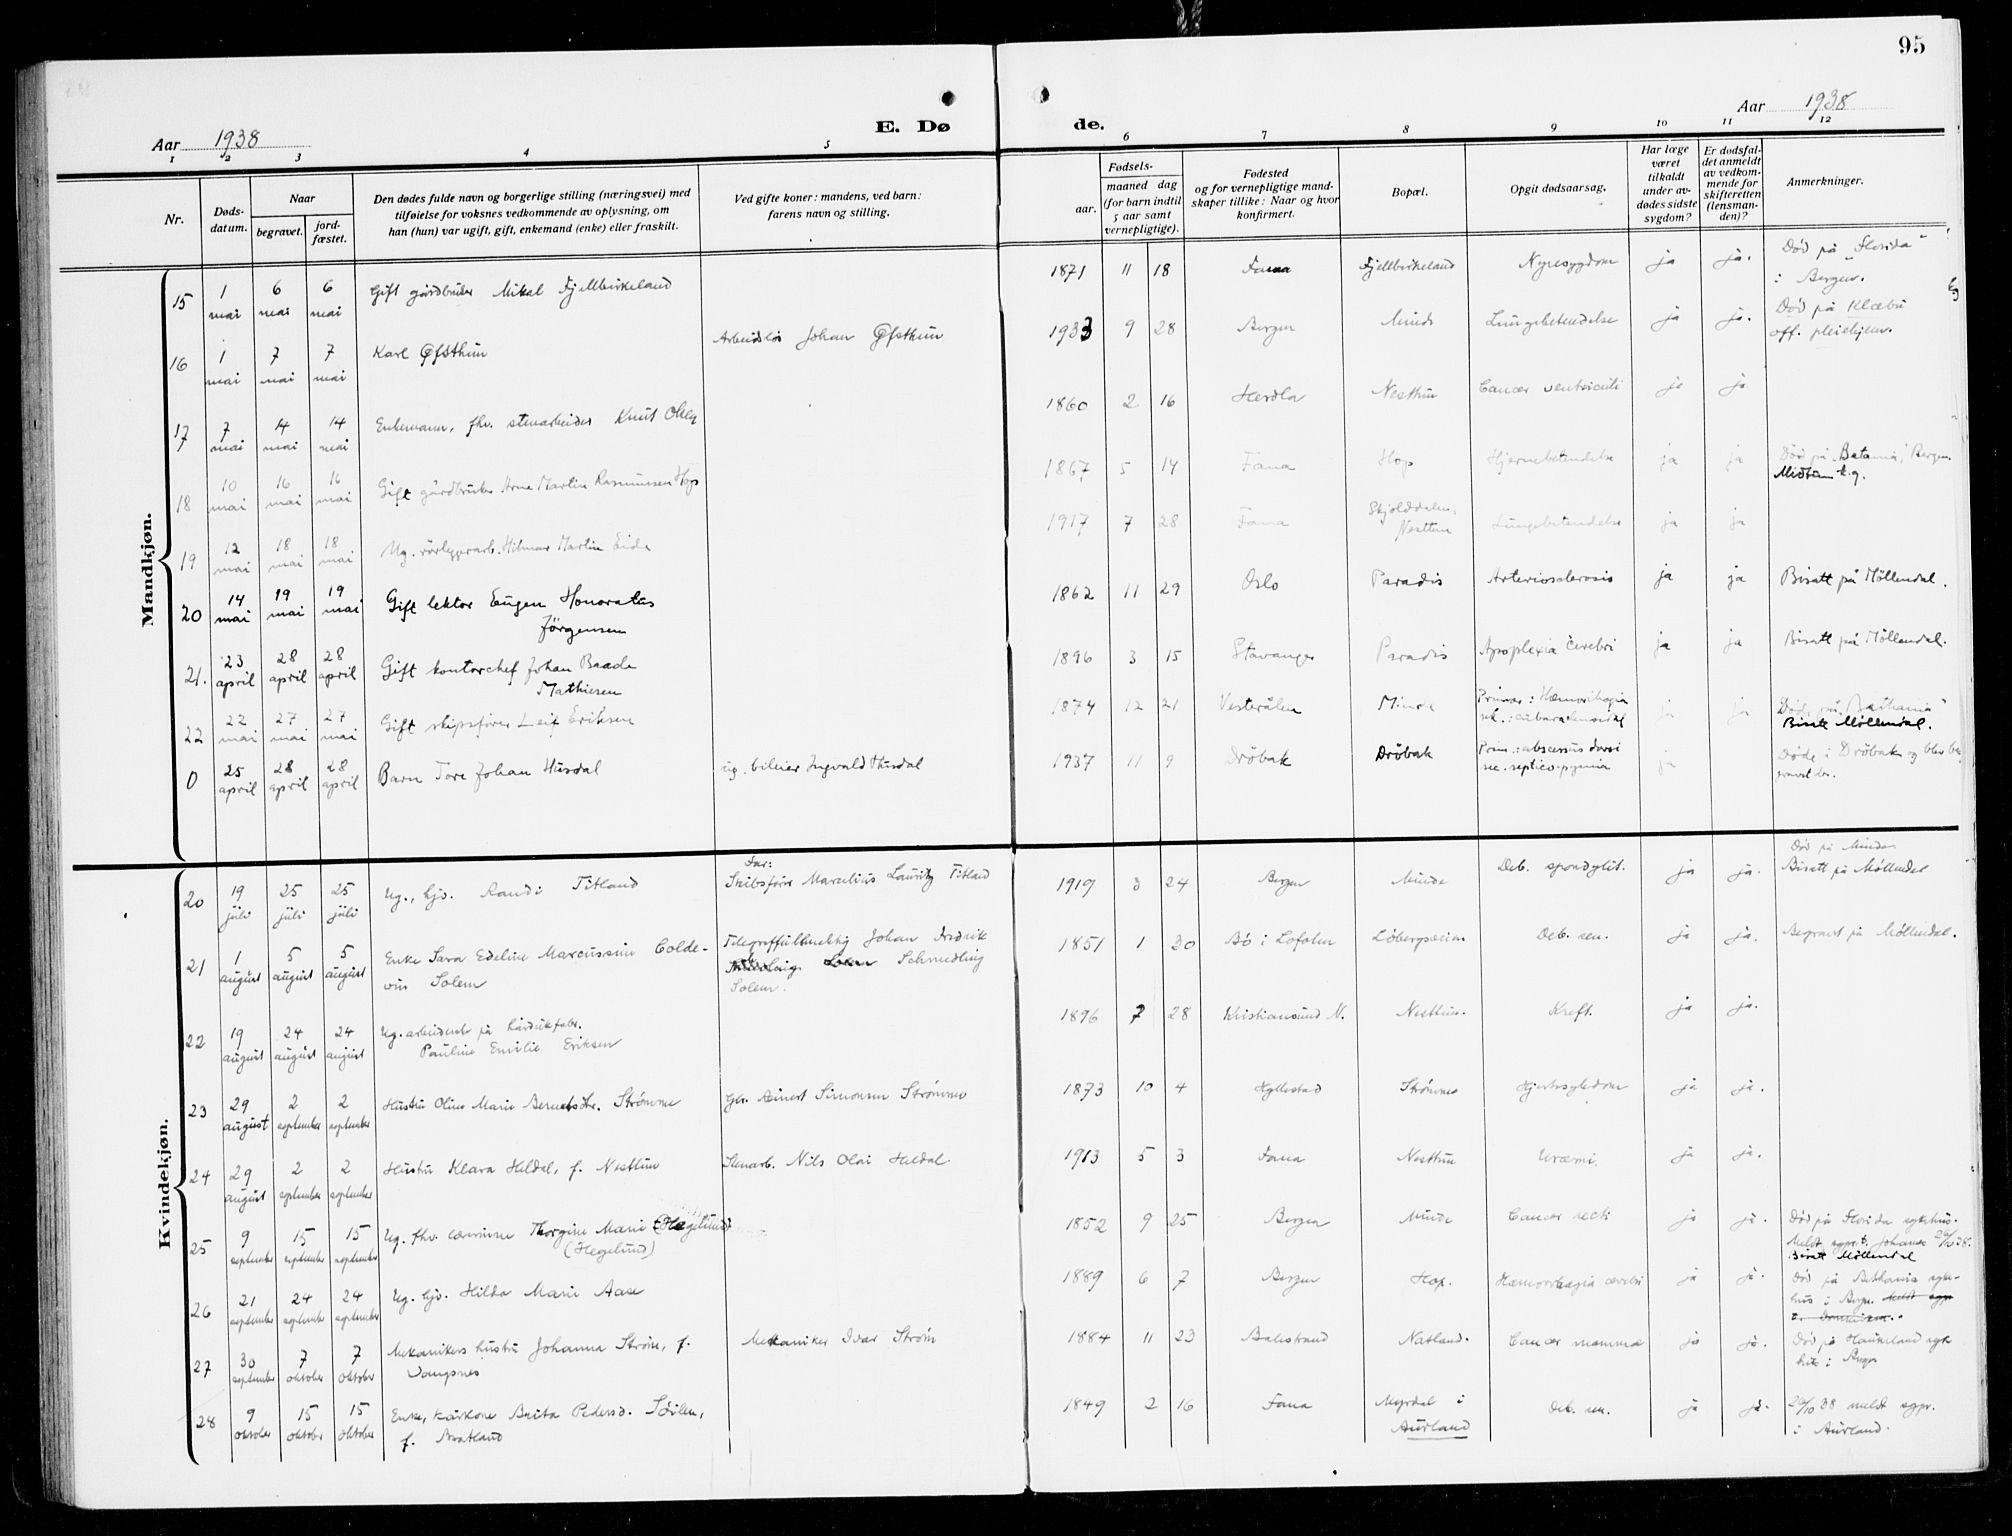 95
Aar 1938
E. Dø
de.
Aar 1938
1 2 3 4 5 6 7 8 9 10 11 12
Nr.
Døds-
datum.
Naar
begravet.
jord-
fæstet.
Den dødes fulde navn og borgerlige stilling (næringsvei) med
tilføielse for voksnes vedkommende av oplysning, om
han (hun) var ugift, gift, enkemand (enke) eller fraskilt.
Ved gifte koner: mandens, ved barn:
farens navn og stilling.
Fødsels-
aar.
maaned dag
(for barn indtil
5 aar samt
vernepligtige).
Fødested
og for vernepligtige mand-
skaper tillike: Naar og hvor
konfirmert.
Bopæl.
Opgit dødsaarsag.
Har læge
været
tilkaldt
under av-
dødes sidste
sygdom?
Er dødsfal-
det anmeldt
av vedkom-
mende for
skifteretten
(lensman-
den)?
Anmerkninger.
Mandkjøn.
15 1 mai 6 mai 6 mai Gift gårdbruker Mikal Fjellbirkeland 1871 11 18 Fana Fjellbirkeland Nyresygdom ja ja. Død på "Florida"
i Bergen.
16 1 mai 7 mai 7 mai Karl Øfsthun Arbeidsløs Johan Øfsthun 1933 9 28 Bergen Minde Lungebetendelse ja ja. Død på Klæbu
off. pleiehjem.
17 7 mai 14 mai 14 mai Enkemann, fhv. stenarbeider Knut Olsen 1860 2 16 Herdla Nesttun Cancer ventriculi ja ja
18 10 mai 16 mai 16 mai Gift gårdbruker Arne Martin Rasmussen Hop 1867 5 14 Fana Hop Hjernebetendelse ja ja Død på "Betania", Bergen
Midttun k.g.
19 12 mai 18 mai 18 mai Ug. rörleggerarb. Hilmar Martin Eide 1917 7 28 Fana Skjolddalen,
Nesttun Lungebetendelse ja ja
20 14 mai 19 mai 19 mai Gift lektor Eugen Honoratus
Jörgensen 1862 11 29 Oslo Paradis Arteriosclerosis ja ja Bisatt på Möllendal.
21. 23 april 28 april 28 april Gift kontorchef Johan Baade
Mathiesen 1896 3 15 Stavanger Paradis Apoplexia cerebri ja ja Bisatt på Möllendal.
22 22 mai 27 mai 27 mai Gift skipsförer Leif Eriksen 1874 12 21 Vesterålen Minde Primær: Hæmorrhagia
ja ja Döde på "Bethania"
Bisatt Möllendal.
0 25 april 28 april 28 april Barn Tore Johan Husdal ug. bileier Ingvald Husdal 1937 11 9 Dröbak Dröbak Prim.: abscessus dorsi
sec. septico-pyemia ja Döde i Dröbak og blev be-
gravet der.
Kvindekjøn.
20 19 juli 25 juli 25 juli Ug., hjv. Randi Titland Far:
Skibsfører Marselius Lauritz Titland 1919 3 24 Bergen Minde Deb. spondylit. ja ja. Død på Minde.
Bisatt på Møllendal
21 1 august 5 august 5 august Enke Sara Edeline Marcussine Colde-
vin Solem Johan Fredrik
Schmedling
Solem. 1851 1 30 Bø i Lofoten Deb. sen. ja ja. Begravet på Møllendal.
22 19 august 24 august 24 august Ug. arbeiderske på
Pauline Emilie Eriksen 1896 7 28 Kristiansund N. Nesttun. Kreft. ja ja.
23 29 august 2 september 2 september Hustru Oline Marie Berntsdtr. Strømme Gbr. Ainert Simonsen Strømme 1873 10 4 Hyllestad Strømme Hjertesykdom ja ja.
24 29 august 2 september 2 september Hustru Klara Heldal, f. Nesttun Stenarb. Nils Olai Heldal. 1913 5 3 Fana Nesttun Uræmi. ja ja.
25 9 september 15 september 15 september Ug. fhv. lærerinne Thorgine Marie (Hegelund)
(Hegelund) 1852 9 25 Bergen Minde Cancer recti ja ja. Død på Florida sykehus.
Meldt sgpr. t. Johannes 22/10 38.
Bisatt Möllendal
26 21 september 24 september 24 september Ug. hjv. Hilda Marie Aase 1889 6 7 Bergen Hop. Hæmorrhagia cerebri ja ja. Død på Bethania syke-
hus i Bergen. Meldt sgpr
t. Domkirken.
27 30 september 7 oktober 7 oktober Mekanikers hustru Johanna Strøm, f.
Vangsnes Mekaniker Ivar Strøm 1884 11 23 Balestrand Natland. Cancer mammæ ja ja. Død på Haukeland syke-
hus i Bergen
28 9 oktober 15 oktober 15 oktober Enke, kårkone Brita Pedersd. Söilen,
f. Bratland 1849 2 16 Fana Myrdal i
Aurland Deb. sen. ja ja. 22/10 38 meldt sgpr.
i Aurland.